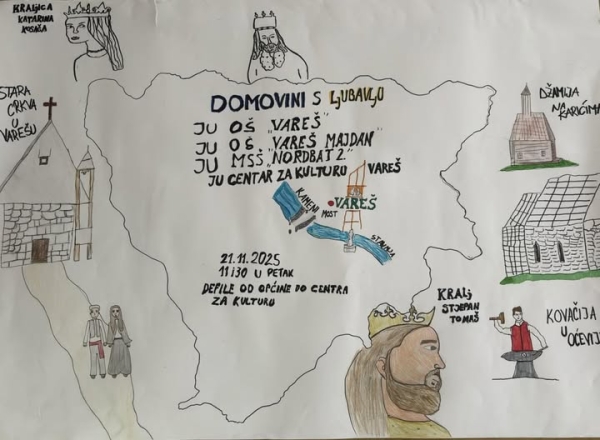 KRALJICA
KATARINA
KOSAČA
DOMOVINI S LJUBAVLJU
JU OŠ „VAREŠ"
JU OŠ „VAREŠ MAJDAN"
JU MSŠ „NORDBAT 2."
JU CENTAR ZA KULTURU VAREŠ
STARA
CRKVA
U
VAREŠU
DŽAMIJA
NA
KARIĆIMA
KAMENI
MOST
VAREŠ
STAVNJA
21.11.2025
11:30 U PETAK
DEFILE OD OPĆINE DO CENTRA
ZA KULTURU
KRALJ
STJEPAN
TOMAŠ
KOVAČIJA
U
OČEVIJI